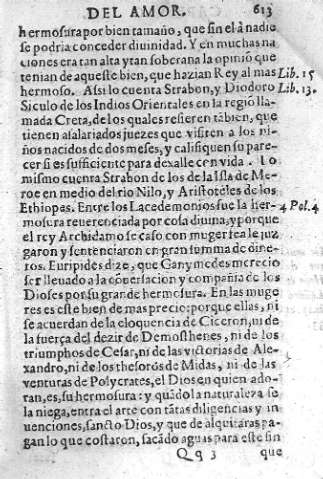 DEL AMOR. 613
hermosura por bien tamaño, que sin el à nadie
se podria conceder diuinidad. Y en muchas na
ciones era tan alta y tan soberana la opiniõ que
tenian de aqueste bien, que hazian Rey al mas Lib. 15
hermoso. Assi lo cuenta Strabon, y Diodoro Lib. 13.
Siculo de los Indios Orientales en la regiõ lla-
mada Creta, de los quales refieren tãbien, que
tienen asalariados juezes que visiten a los ni-
ños nacidos de dos meses, y califiquen su pare-
cer si es sufficiente para dexalle con vida. Lo
mismo cuenta Strabon de los de la Isla de Me-
roe en medio del rio Nilo, y Aristoteles de los
Ethiopas. Entre los Lacedemonios fue la her- 4 Pol. 4
mosura reuerenciada por cosa diuina, y porque
el rey Archidamo se caso con muger fea le juz
garon y sentenciaron en gran summa de dine-
ros. Euripides dize, que Ganymedes merecio
ser lleuado a la cõuersacion y compañia de los
Dioses por su grande hermosura. En las muge
res es este bien de mas precio: porque ellas, ni
se acuerdan de la eloquencia de Ciceron, ni de
la fuerça del dezir de Demosthenes, ni de los
triumphos de Cesar, ni de las victorias de Ale-
xandro, ni de los thesoros de Midas, ni de las
venturas de Polycrates, el Dios en quien ado-
ran, es, su hermosura: y quãdo la naturaleza se
la niega, entra el arte con tãtas diligencias y in
uenciones, sancto Dios, y que de alquitaras pa-
gan lo que costaron, sacãdo aguas para este fin
Qq 3 que